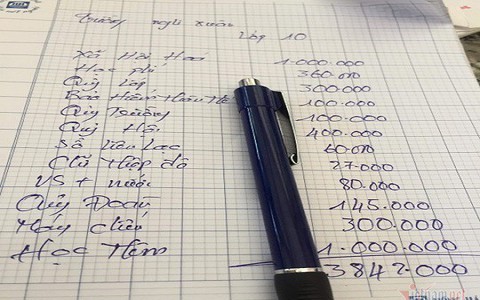 Trường ngô xuân
Lớp 10
Xã Hội Hoá 1.000.000
Học phí 360.000
Quỹ lớp 300.000
Bảo Hiểm 100.000
Quỹ Trường 100.000
Quỹ Hội 400.000
Sổ liên lạc 60.000
27.000
VS + nước 80.000
Quỹ Đoàn 145.000
Máy chiếu 300.000
Học Thêm 1.000.000
3842.000